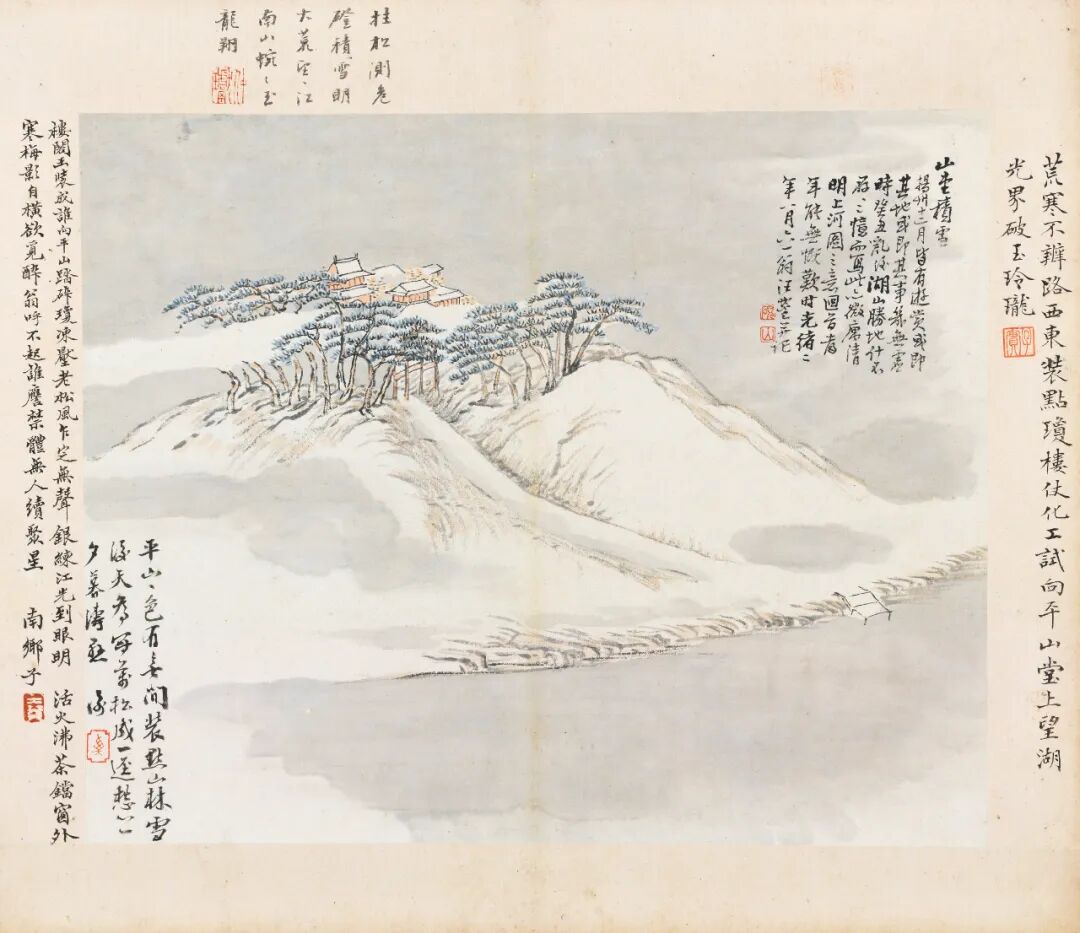 拄松測老
磴積雪明
大荒望〻江
南山蜿〻玉
龍翔
荒寒不辨路西東裝點瓊樓仗化工試向平山堂上望湖
光界破玉玲瓏
山堂積雪
揚州十二月皆有遊賞或即
其地或即其事幾無虛
時癸丑亂後湖山勝地什不
存〻憶而寫此以倣
明上河圖之意回首當
年能無慨歎時光緒二
年八月六一翁汪
平山〻色有無間裝點山林雪
後天為寫萬松成一逕愁心
夕暮濤
樓閣玉裝成誰向平山踏碎瓊凍壓老松風乍定無聲銀練江光到眼明 活火沸茶鐺窗外
寒梅影自橫欲覓醉翁呼不起誰賡禁體無人續聚星 南鄉子